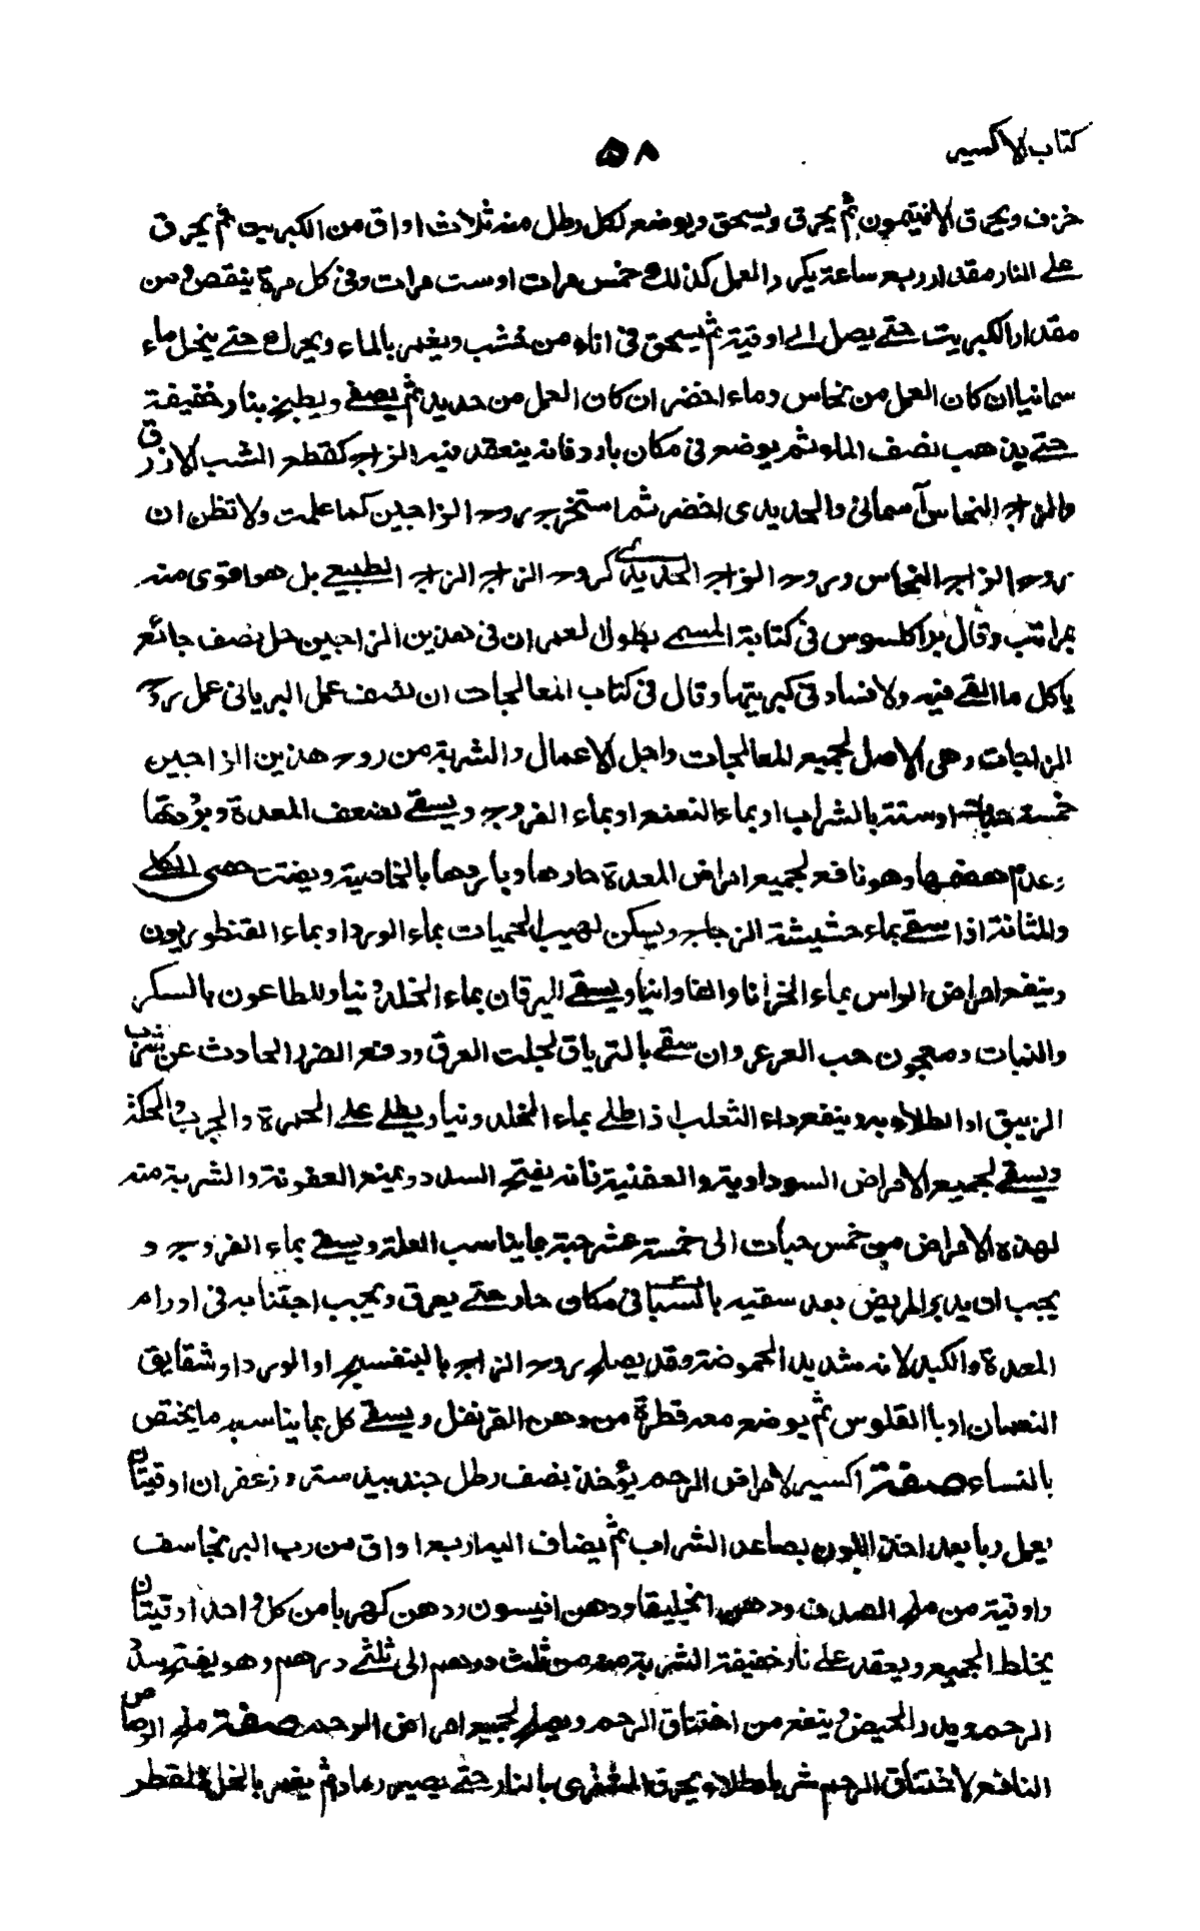 كتاب الاكسير ٥٨
خزف ويحرق الافتيمون ثم يحرق ويسحق ويوضع لكل رطل منه ثلاث اواق من الكبريت ثم يحرق
على النار مقدار ربع ساعة يكرر العمل كذلك خمس مرات او ست مرات وفى كل مرة ينقص من
مقدار الكبريت حتى يصل الى اوقية ثم يسحق فى اناء من خشب ويغمر بالماء ويحرك حتى ينحل ماء
سمانيا ان كان العمل من نحاس وماء اخضر ان كان العمل من حديد ثم يصفى ويطبخ بنار خفيفة
حتى يذهب نصف الماء ثم يوضع فى مكان بارد فانه ينعقد فيه الزاج كقطع الشب الازرق
والزاج النحاس آسمانى والحديدى اخضر ثم استخرج روح الزاجين كما علمت ولا تظن ان
روح الزاج النحاس وروح الزاج الحديدى كروح الزاج الزاج الطبيعى بل هو اقوى منه
بمراتب وقال براكلسوس فى كتابة المسمى بطول العمر ان فى هذين الزاجين حل نصف جائع
ياكل ما القى فيه ولا فساد فى كبريتها وقال فى كتاب المعالجات ان نصف عمل البريانى عمل روح
الزاجات وهى الاصل لجميع المعالجات واجل الاعمال والشربة من روح هذين الزاجين
خمسة حبات او ستة بالشراب او بماء النعنع او بماء الفروج ويسقى لضعف المعدة وبرودتها
وعدم هضمها وهو نافع لجميع امراض المعدة حارها وباردها بالخاصية ويفتت حصى الكلى
والمثانة اذا سقى بماء حشيشة الزجاج ويسكن لهيب الحميات بماء الورد او بماء القنطوريون
وينفع امراض الراس بماء الخزانا والفاوانيا ويسقى اليرقان بماء الخلدونيا وللطاعون بالسكر
والنبات ومعجون حب العرعر وان سقى بالترياق لجلت العرق ودفع الضرر الحادث عن شرب
الزيبق او الطلاء به وينفع داء الثعلب اذا طلى بماء الخلدونيا ويطلى على الحمرة والجرب والحكة
ويسقى لجميع الامراض السوداوية والعفنية فانه يفتح السدد ويمنع العفونة والشربة منه
لهذه الامراض من خمس حبات الى خمسة عشر حبة بما يناسب العلة ويسقى بماء الفروج و
يجب ان يدبر المريض بعد سقيه فى مكان حار حتى يعرق ويجب اجتنابه فى اورام
المعدة والكبد لانه شديد الحموضة وقد يصلح روح الزاج بالبنفسج او الورد او شقايق
النعمان او بالقلوس ثم يوضع معه قطرة من دهن القرنفل ويسقى كل بما يناسبه ما يختص
بالنساء صفة اكسير لامراض الرحم يؤخذ نصف رطل جندبيدستر وزعفران اوقيتان
يعمل ربا بعد اخذ اللون بصاعد الشراب ثم يضاف اليه اربع اواق من رب البرنجاسف
واوقية من ملح الصدف ودهن انجليقا ودهن انيسون ودهن كهربا من كل واحد اوقيتان
يخلط الجميع ويعقد على نار خفيفة الشربة منه من ثلث درهم الى ثلثى درهم وهو يفتح سدد
الرحم ويدر الحيض وينفع من اختناق الرحم ويصلح لجميع امراض الرحم صفة ملح الرصاص
النافع لاختناق الرحم شربا وطلاء يحرق المشترى بالنار حتى يصير رماد ثم يغمر بالخل المقطر